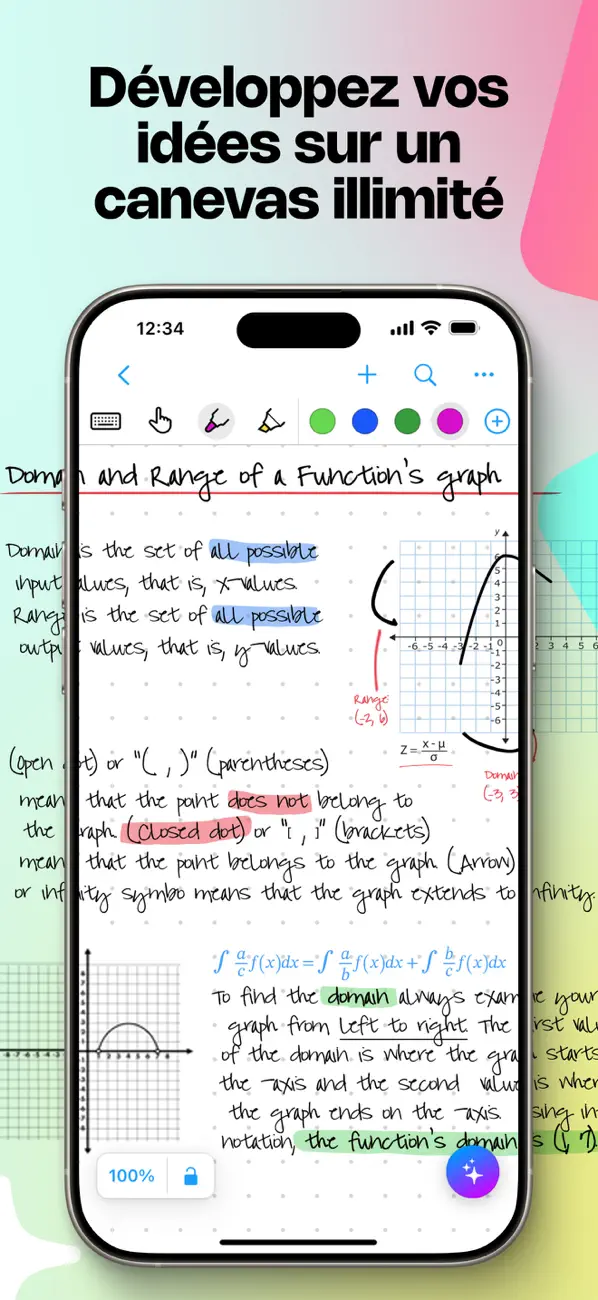 Développez vos
idées sur un
canevas illimité
12:34
Domain and Range of a Function's graph
Domain is the set of all possible
input values, that is, x-values.
Range is the set of all possible
output values, that is, y-values.
y
6
5
4
3
2
1
-6 -5 -4 -3 -2 -1 0 2 3 4 5 6
-1
-2
-3
-4
-5
-6
Range
(-2, 6)
Z = x - μ / σ
Domain
(-3, 3
(Open dot) or "( , )" (parentheses)
mean that the point does not belong to
the graph. (Closed dot) or "[ , ]" (brackets)
mean that the point belongs to the graph. (Arrow)
or infinity symbo means that the graph extends to infinity.
∫ a/c f(x)dx = ∫ a/b f(x)dx + ∫ b/c f(x)dx
To find the domain always examine your
graph from left to right. The first valu
of the domain is where the graph starts
the -axis and the second value is wher
the graph ends on the -axis. sing in
notation, the function's domain is (1, 7)
100%